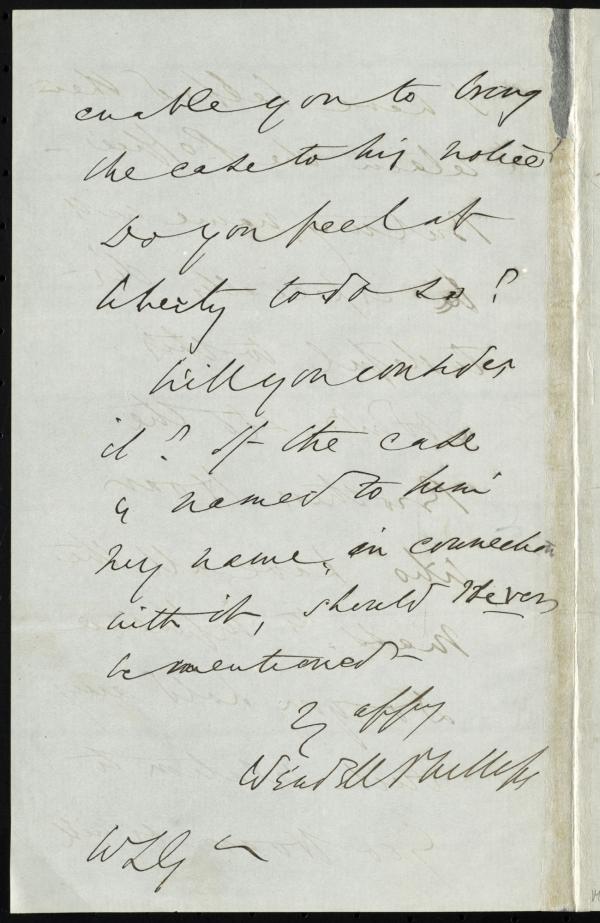 enable you to bring
the case to his notice
Do you feel at
liberty to do so?
Will you consider
it? If the case
is named to him
my name, in connection
with it, should never
be mentioned
Yrs affly
Wendell Phillips
WLG